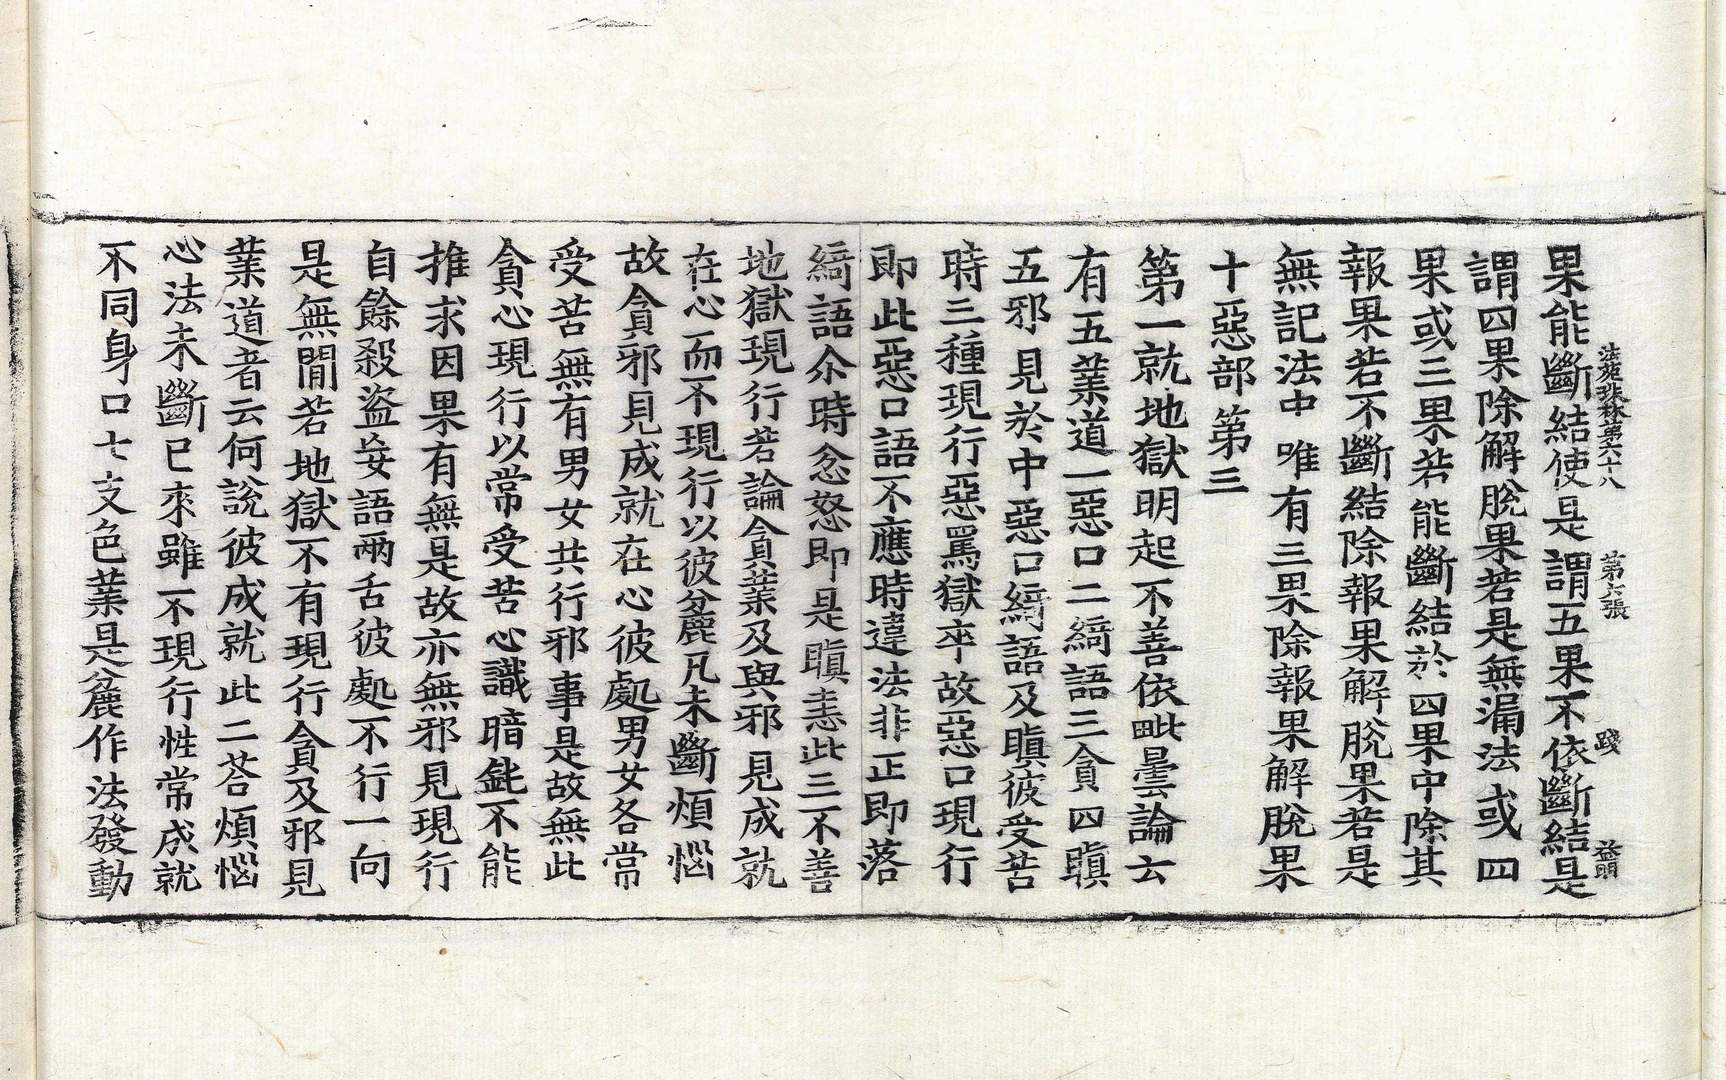 法苑珠林第六十八　第六張　踐　益明
果能斷結使是謂五果不依斷結是
謂四果除解脫果若是無漏法或四
果或三果若能斷結於四果中除其
報果若不斷結除報果解脫果若是
無記法中唯有三果除報果解脫果
十惡部第三
第一就地獄明起不善依毗曇論云
有五業道一惡口二綺語三貪四瞋
五邪見於中惡口綺語及瞋彼受苦
時三種現行惡罵獄卒故惡口現行
即此惡口語不應時違法非正即落
綺語尒時忿怒即是瞋恚此三不善
地獄現行若論貪業及與邪見成就
在心而不現行以彼麁凡未斷煩惱
故貪邪見成就在心彼處男女各常
受苦無有男女共行邪事是故無此
貪心現行以常受苦心識暗鈍不能
推求因果有無是故亦無邪見現行
自餘殺盜妄語兩舌彼處不行一向
是無間若地獄不有現行貪及邪見
業道者云何說彼成就此二荅煩惱
心法未斷已來雖不現行性常成就
不同身口七支色業是麁作法發動